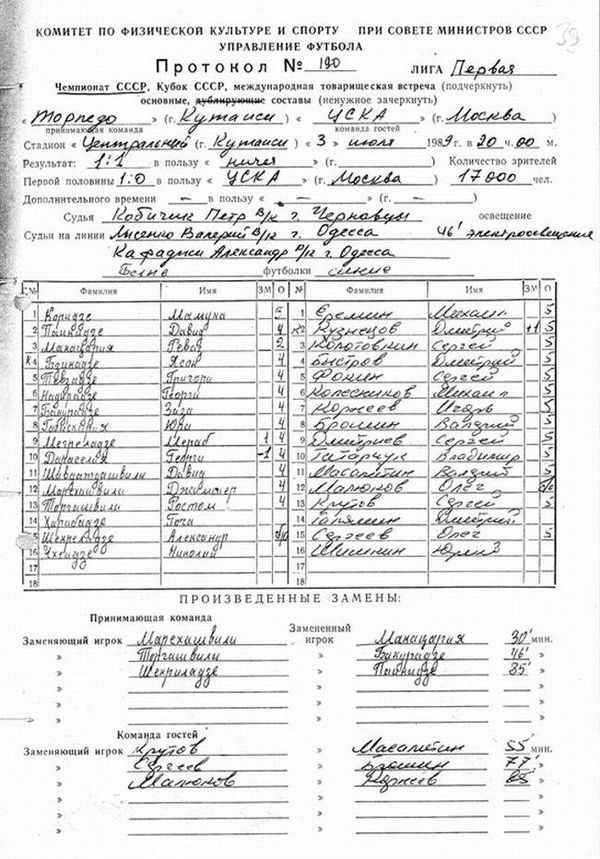 39
КОМИТЕТ ПО ФИЗИЧЕСКОЙ КУЛЬТУРЕ И СПОРТУ ПРИ СОВЕТЕ МИНИСТРОВ СССР
УПРАВЛЕНИЕ ФУТБОЛА
Протокол № 190 ЛИГА Первая
Чемпионат СССР, Кубок СССР, международная товарищеская встреча (подчеркнуть)
основные, дублирующие составы (ненужное зачеркнуть)
« Торпедо » (г. Кутаиси) « ЦСКА » (г. Москва)
принимающая команда команда гостей
Стадион « Центральный (г. Кутаиси) « 3 » июля 1989 г. в 20 ч. 00 м.
Результат: 1:1 в пользу « ничья » ( ) Количество зрителей
Первой половины 1:0 в пользу « ЦСКА » (г. Москва) 17000 чел.
Дополнительного времени — в пользу « — » (г. — )
Судья Кобичик Петр в/к г. Черновцы освещение
Судьи на линии Лысенко Валерий в/к г. Одесса 46' электроосвещения
Кафаджи Александр р/к г. Одесса
Белые футболки синие
№ Фамилия Имя ЗМ О № Фамилия Имя ЗМ О
1 Коридзе Мамука 5 1 Еремин Михаил 5
2 Паикидзе Давид 4 к2 Кузнецов Дмитрий +1 5
3 Манацария Геваз 2 3 Колотовкин Сергей 5
к4 Бзикадзе Ясон 4 4 Быстров Дмитрий 5
5 Тевзадзе Григори 4 5 Фокин Сергей 5
6 Надирадзе Георги 4 6 Колесников Михаил 5
7 Бакурадзе Заза 4 7 Корнеев Игорь 5
8 Габискирия Юри 4 8 Брошин Валерий 5
9 Мегреладзе Мераб 1 4 9 Дмитриев Сергей 5
10 Данаселия Георги -1 4 10 Татарчук Владимир 5
11 Шавдатуашвили Давид 4 11 Масалитин Валерий 5
12 Марехашвили Джимшер 4 12 Малюков Олег б/о
13 Торгашвили Ростом 4 13 Крутов Сергей 5
14 Харибадзе Гоча 14 Галямин Дмитрий
15 Шекреладзе Александр б/о 15 Сергеев Олег 5
16 Чхеидзе Николай 16 Шишкин Юрий
17 17
18 18
ПРОИЗВЕДЕННЫЕ ЗАМЕНЫ:
Принимающая команда Замененный
Заменяющий игрок Марехашвили игрок Манацария 30' мин.
» Торгашвили » Бакурадзе 46' »
» Шекриладзе » Паикидзе 85' »
» » »
» » »
Команда гостей
Заменяющий игрок Крутов » Масалитин 55' мин.
» Сергеев » Брошин 77' »
» Малюков » Корнеев 85' »
» » »
» » »
» » »